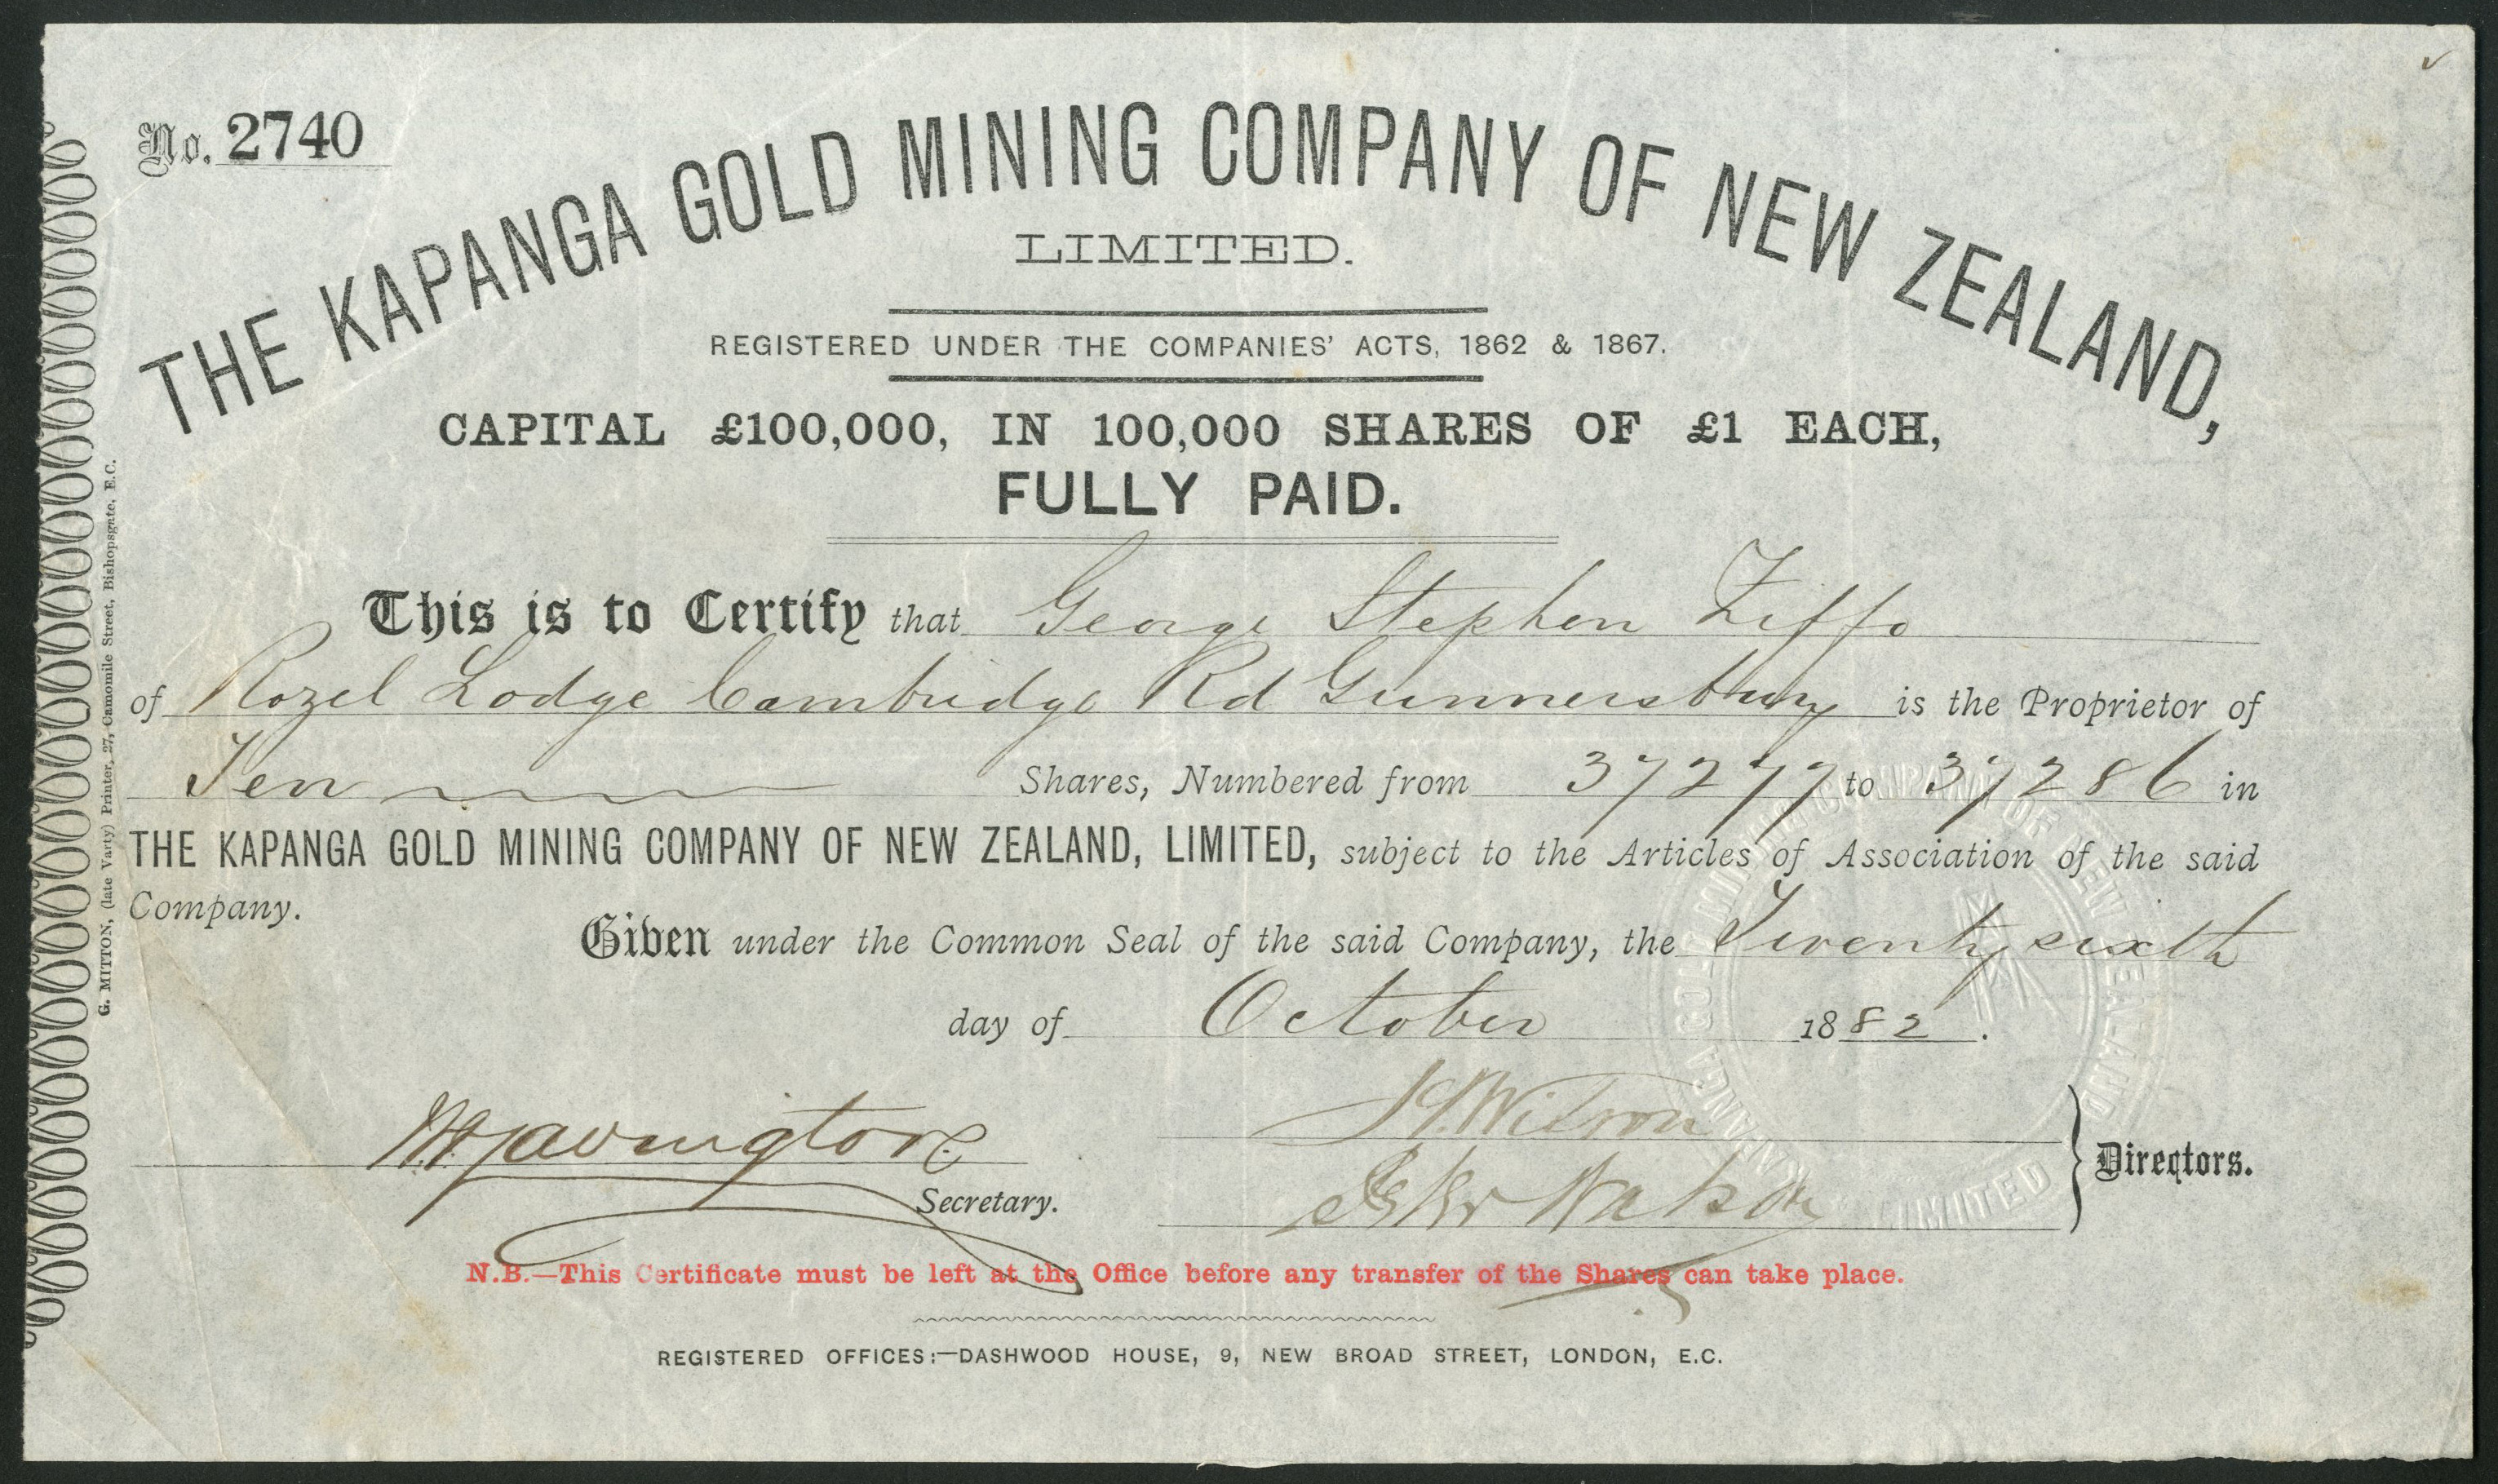 No. 2740
THE KAPANGA GOLD MINING COMPANY OF NEW ZEALAND,
LIMITED.
REGISTERED UNDER THE COMPANIES' ACTS, 1862 & 1867.
CAPITAL £100,000, IN 100,000 SHARES OF £1 EACH,
FULLY PAID.
This is to Certify that George Stephen Ziffo
of Rozel Lodge Cambridge Rd Gunnersbury is the Proprietor of
Ten Shares, Numbered from 37277 to 37286 in
THE KAPANGA GOLD MINING COMPANY OF NEW ZEALAND, LIMITED, subject to the Articles of Association of the said
Company.
Given under the Common Seal of the said Company, the Twenty sixth
day of October 1882.
Secretary.
H. Wilson
Directors.
N.B.—This Certificate must be left at the Office before any transfer of the Shares can take place.
REGISTERED OFFICES:—DASHWOOD HOUSE, 9, NEW BROAD STREET, LONDON, E.C.
G. MITTON, (late Varty) Printer, 27, Camomile Street, Bishopsgate, E.C.
KAPANGA GOLD MINING COMPANY OF NEW ZEALAND LIMITED